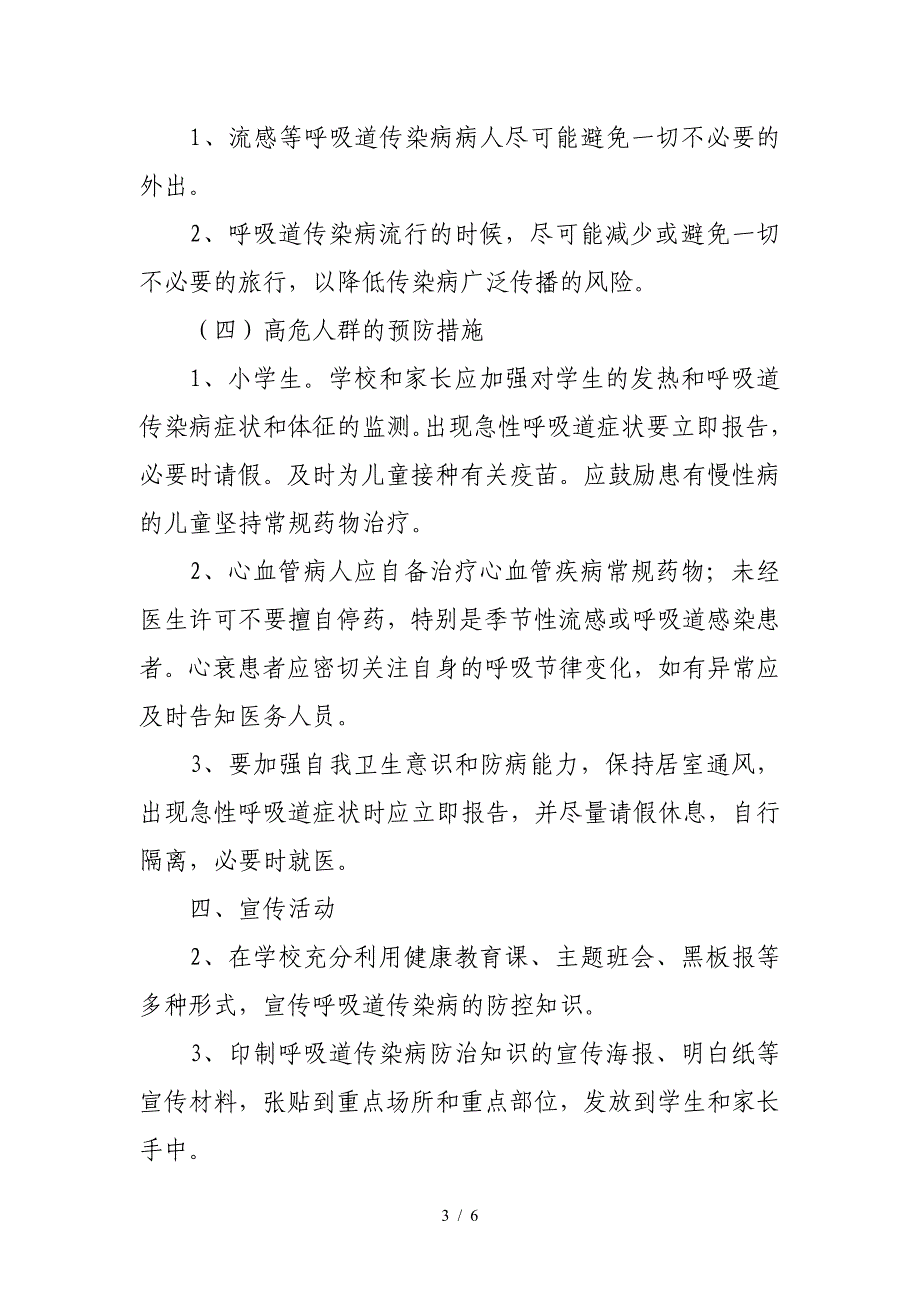 1、流感等呼吸道传染病病人尽可能避免一切不必要的
外出。
2、呼吸道传染病流行的时候，尽可能减少或避免一切
不必要的旅行，以降低传染病广泛传播的风险。
（四）高危人群的预防措施
1、小学生。学校和家长应加强对学生的发热和呼吸道
传染病症状和体征的监测。出现急性呼吸道症状要立即报告，
必要时请假。及时为儿童接种有关疫苗。应鼓励患有慢性病
的儿童坚持常规药物治疗。
2、心血管病人应自备治疗心血管疾病常规药物；未经
医生许可不要擅自停药，特别是季节性流感或呼吸道感染患
者。心衰患者应密切关注自身的呼吸节律变化，如有异常应
及时告知医务人员。
3、要加强自我卫生意识和防病能力，保持居室通风，
出现急性呼吸道症状时应立即报告，并尽量请假休息，自行
隔离，必要时就医。
四、宣传活动
2、在学校充分利用健康教育课、主题班会、黑板报等
多种形式，宣传呼吸道传染病的防控知识。
3、印制呼吸道传染病防治知识的宣传海报、明白纸等
宣传材料，张贴到重点场所和重点部位，发放到学生和家长
手中。
3 / 6